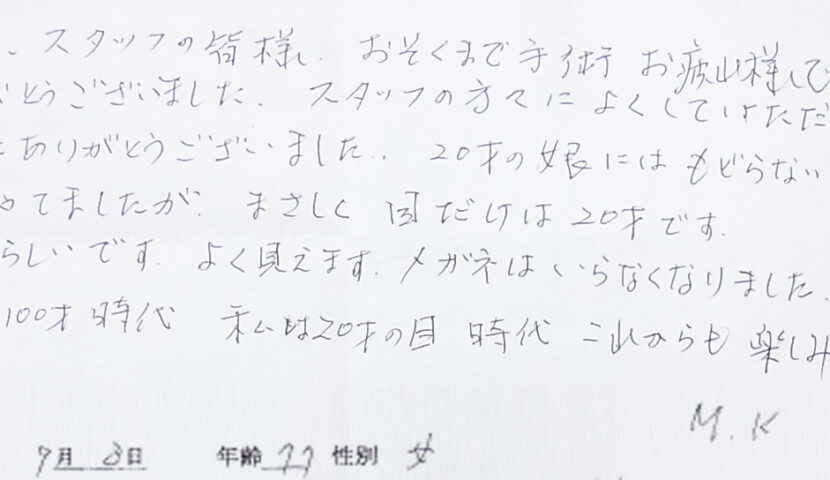 、スタッフの皆様、おそくまで手術 お疲れ様して
とうございました、スタッフの方々によくしていただ
ありがとうございました.. 20才の娘にはもどらない
てましたが、まさしく目だけは20才です.
らしいです. よく見えます. メガネはいらなくなりました.
100才時代 私は20才の目 時代 これからも 楽しみ
M.K
9月 8日 年齢 77 性別 女